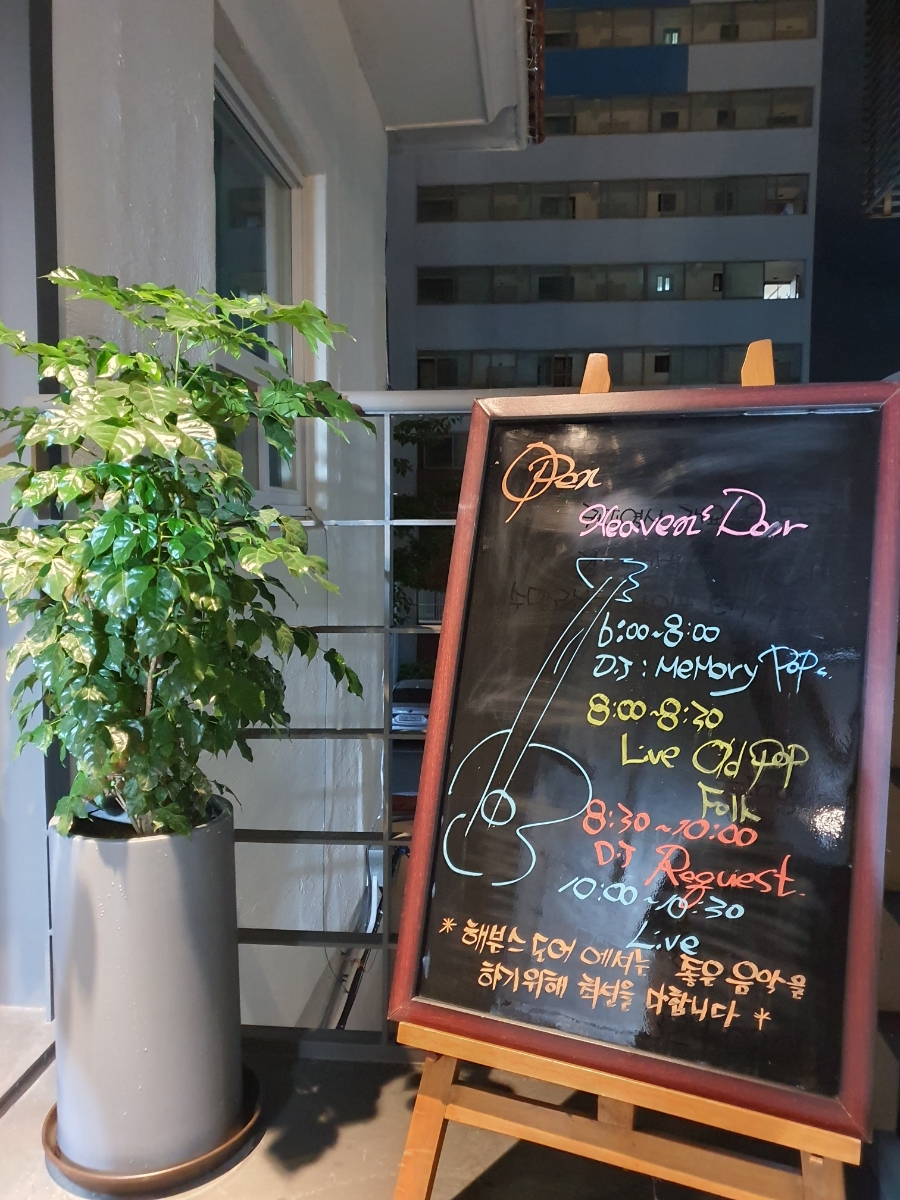 Open
Heaven's Door
6:00~8:00
D.J : Memory Pops.
8:00~8:30
Live Old Pop
Folk
8:30~10:00
D.J Request.
10:00~10:30
Live
* 해부스도어에서는 좋은 음악을
하기위해 최선을 다합니다 *